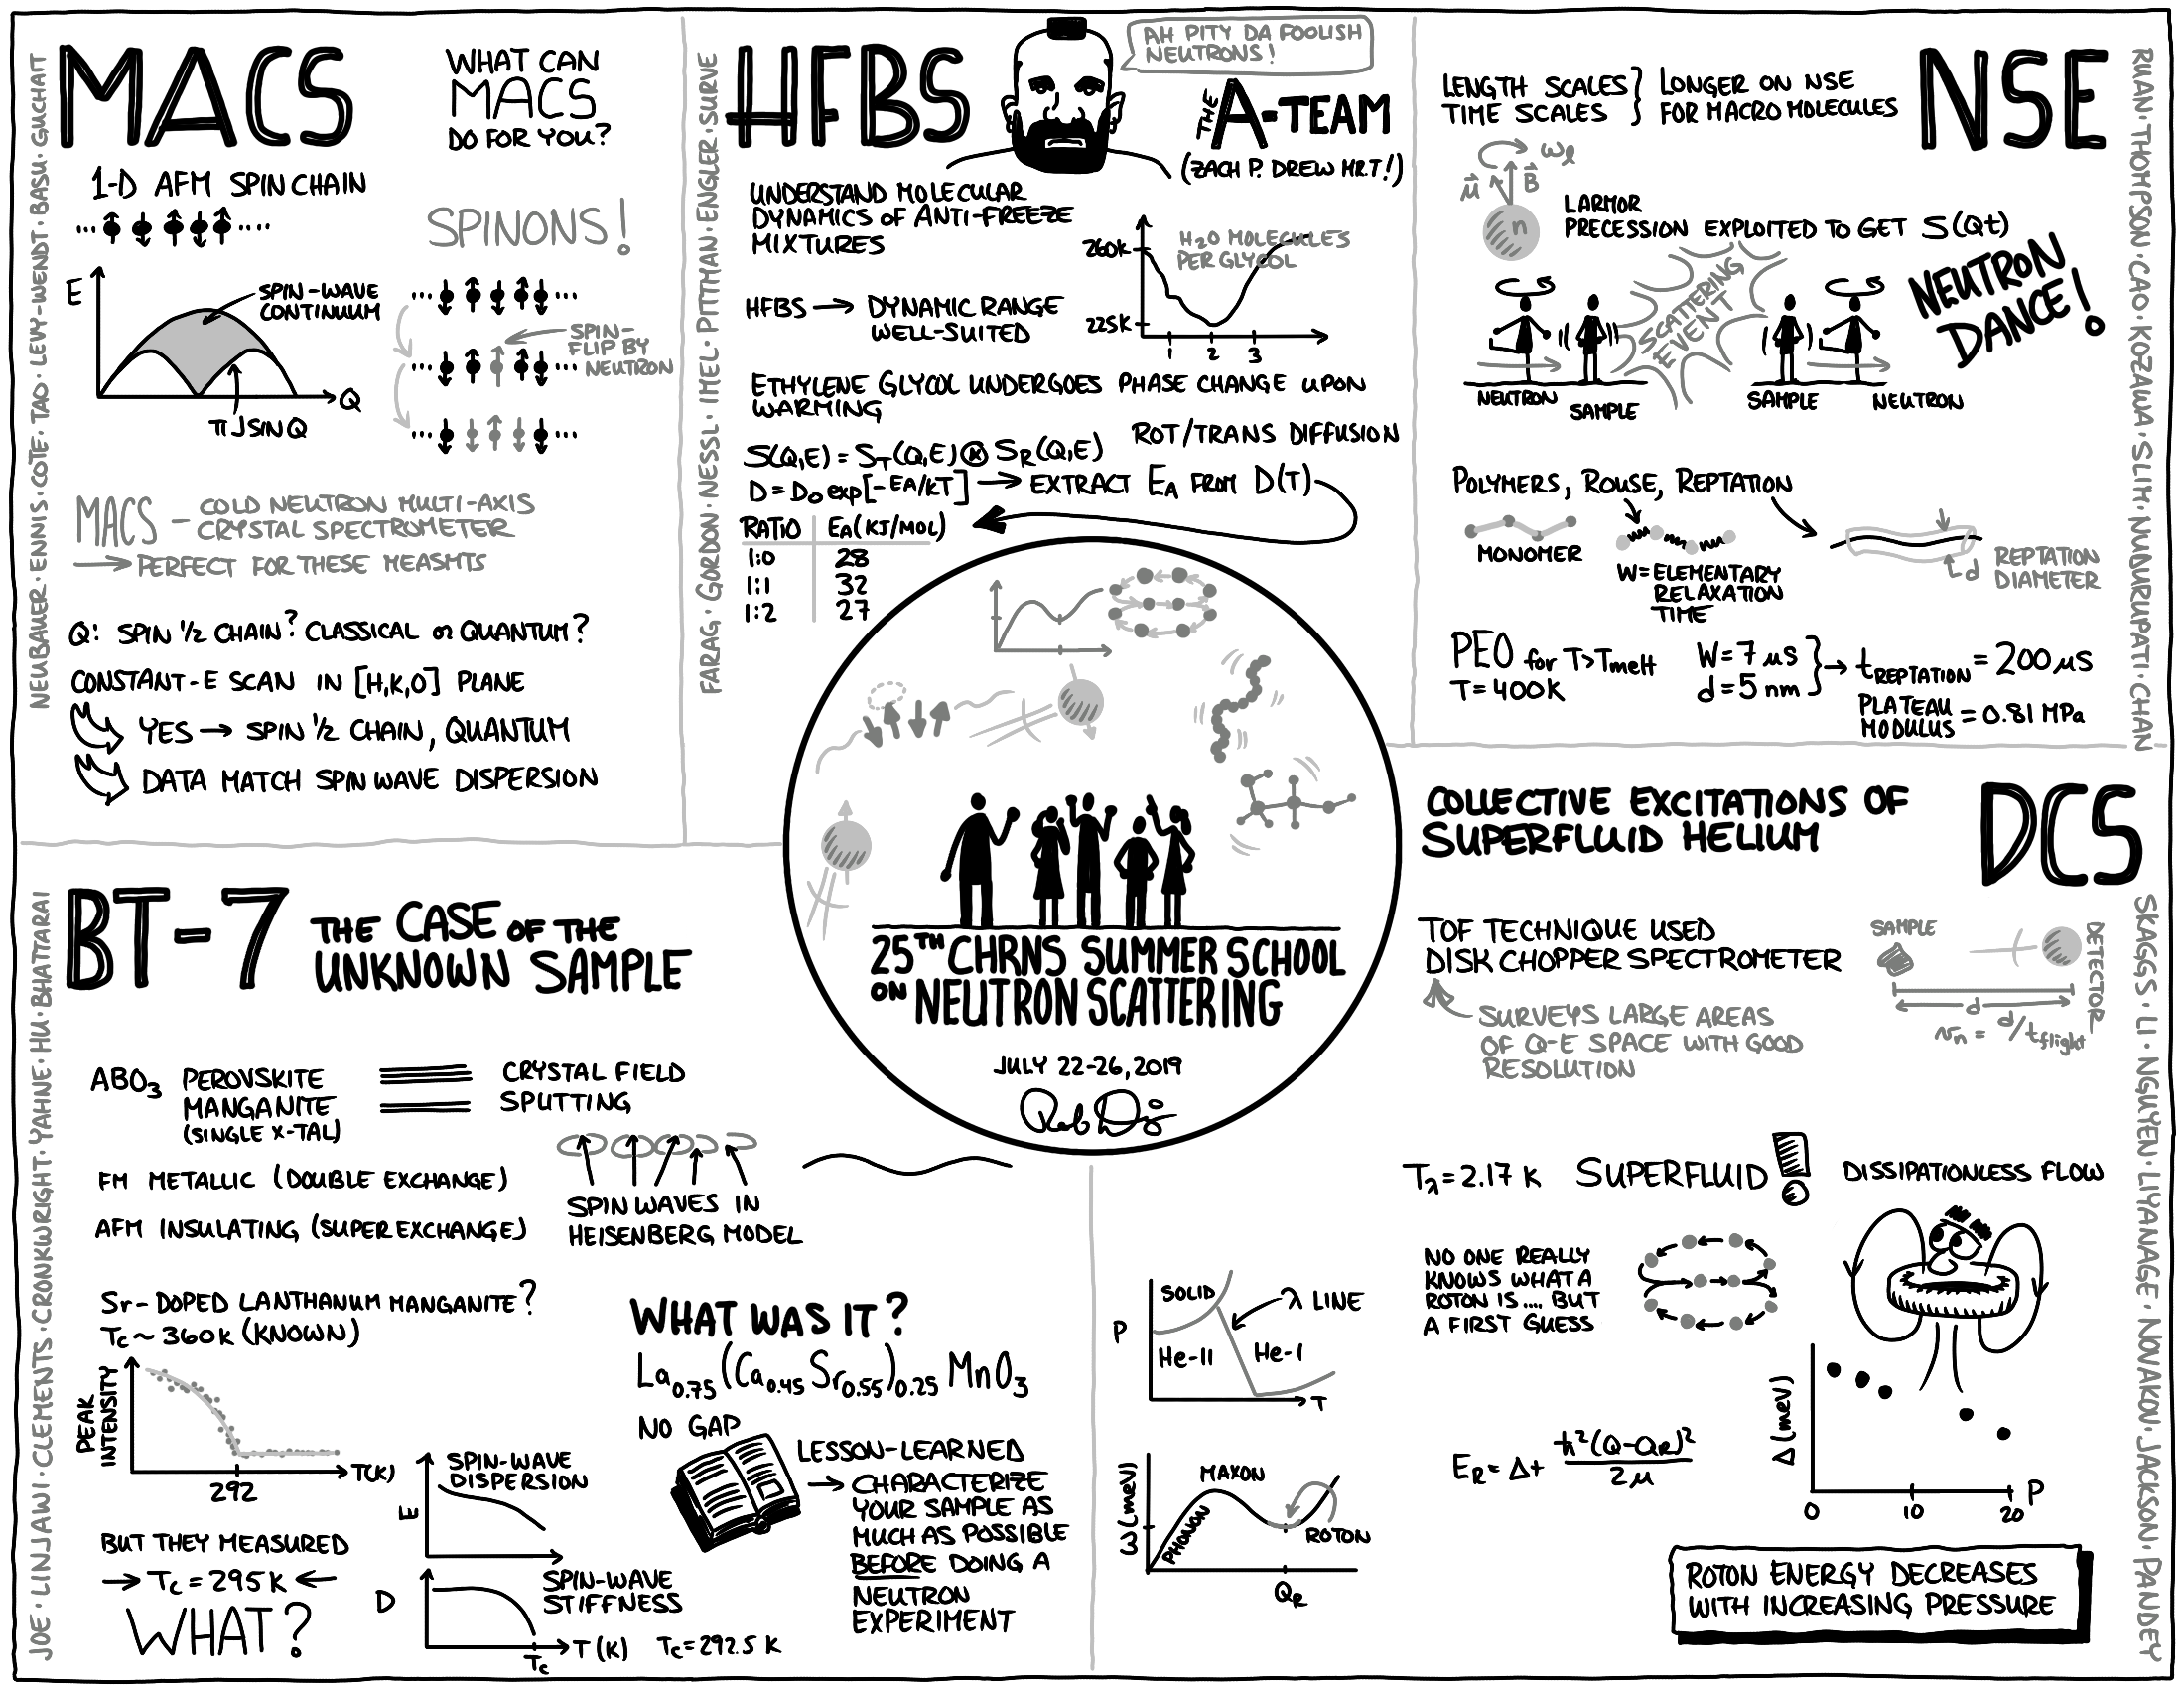 NEUBAUER · ENNIS · COTE · TAO · LEVY-WENDT · BASU · GUCHAIT
MACS
WHAT CAN
MACS
DO FOR YOU?
1-D AFM SPIN CHAIN
SPINONS!
E
SPIN-WAVE
CONTINUUM
Q
π J SIN Q
SPIN-
FLIP BY
NEUTRON
MACS – COLD NEUTRON MULTI-AXIS
CRYSTAL SPECTROMETER
→ PERFECT FOR THESE MEASMTS
Q: SPIN 1/2 CHAIN? CLASSICAL OR QUANTUM?
CONSTANT-E SCAN IN [H,K,0] PLANE
YES → SPIN 1/2 CHAIN, QUANTUM
DATA MATCH SPIN WAVE DISPERSION
FARAG · GORDON · NESSL · IMEL · PITTMAN · ENGLER · SURVE
HFBS
AH PITY DA FOOLISH
NEUTRONS!
THE A-TEAM
(ZACH P. DREW MR.T!)
UNDERSTAND MOLECULAR
DYNAMICS OF ANTI-FREEZE
MIXTURES
260K
225K
H₂O MOLECULES
PER GLYCOL
1 2 3
HFBS → DYNAMIC RANGE
WELL-SUITED
ETHYLENE GLYCOL UNDERGOES PHASE CHANGE UPON
WARMING
ROT/TRANS DIFFUSION
S(Q,E) = S_T(Q,E) ⊗ S_R(Q,E)
D = D₀ exp[-EA/KT] → EXTRACT E_A FROM D(T)
RATIO E_A (KJ/MOL)
1:0 28
1:1 32
1:2 27
NSE
RUAN · THOMPSON · CAO · KOZAWA · SLIM · NUDURUPATI · CHAN
LENGTH SCALES } LONGER ON NSE
TIME SCALES } FOR MACRO MOLECULES
ωℓ
μ⃗ B⃗
n
LARMOR
PRECESSION EXPLOITED TO GET S(Qt)
SCATTERING
EVENT
NEUTRON
DANCE!
NEUTRON SAMPLE SAMPLE NEUTRON
POLYMERS, ROUSE, REPTATION
MONOMER
W = ELEMENTARY
RELAXATION
TIME
d
REPTATION
DIAMETER
PEO for T>Tmelt
T=400K
W = 7 μS
d = 5 nm
} → t_REPTATION = 200 μS
PLATEAU
MODULUS = 0.81 MPa
25TH CHRNS SUMMER SCHOOL
ON NEUTRON SCATTERING
JULY 22-26, 2019
JOE · LINJAWI · CLEMENTS · CRONKWRIGHT · YAHNE · HU · BHATTARAI
BT-7
THE CASE OF THE
UNKNOWN SAMPLE
ABO₃ PEROVSKITE
MANGANITE
(SINGLE X-TAL)
CRYSTAL FIELD
SPLITTING
FM METALLIC (DOUBLE EXCHANGE)
AFM INSULATING (SUPER EXCHANGE)
SPIN WAVES IN
HEISENBERG MODEL
Sr-DOPED LANTHANUM MANGANITE?
Tc ~ 360K (KNOWN)
PEAK
INTENSITY
292
T(K)
BUT THEY MEASURED
→ Tc = 295K ←
WHAT?
E
SPIN-WAVE
DISPERSION
D
SPIN-WAVE
STIFFNESS
Tc
T (K)
Tc = 292.5 K
WHAT WAS IT?
La₀.₇₅(Ca₀.₄₅Sr₀.₅₅)₀.₂₅MnO₃
NO GAP
LESSON-LEARNED
→ CHARACTERIZE
YOUR SAMPLE AS
MUCH AS POSSIBLE
BEFORE DOING A
NEUTRON
EXPERIMENT
DCS
SKAGGS · LI · NGUYEN · LIYANAGE · NOVAKOV · JACKSON · PANDEY
COLLECTIVE EXCITATIONS OF
SUPERFLUID HELIUM
TOF TECHNIQUE USED
DISK CHOPPER SPECTROMETER
SURVEYS LARGE AREAS
OF Q-E SPACE WITH GOOD
RESOLUTION
SAMPLE
DETECTOR
d
vn = d/tflight
Tλ = 2.17 K SUPERFLUID! DISSIPATIONLESS FLOW
NO ONE REALLY
KNOWS WHAT A
ROTON IS .... BUT
A FIRST GUESS
P
SOLID
λ LINE
He-II
He-I
T
ω (meV)
PHONON
MAXON
ROTON
Q_R
E_R = Δ + ħ²(Q-Q_R)²/2μ
Δ (meV)
0 10 20
P
ROTON ENERGY DECREASES
WITH INCREASING PRESSURE